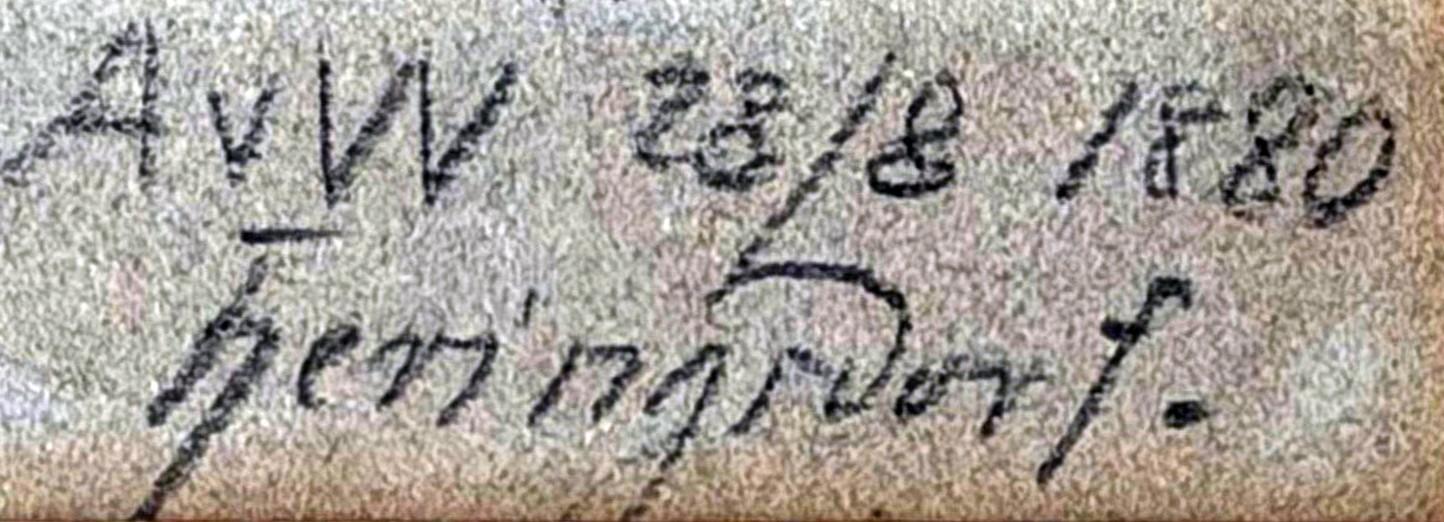 AvW 28/8 1880
Herringsdorf.